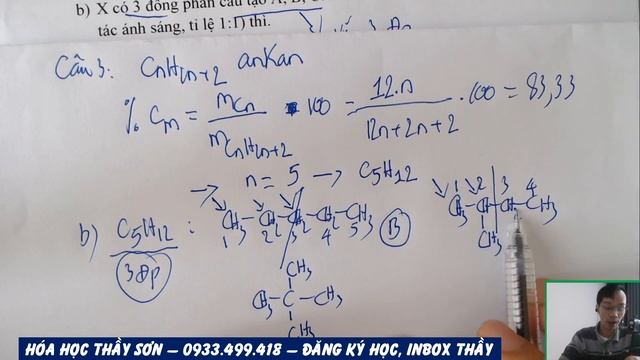 b) X có 3 đồng phân cấu tạo A, B,
tác ánh sáng, tỉ lệ 1:1) thì.
Câu 3: CnH2n+2 ankan
% Cm = mCn / mCnH2n+2 · 100 = 12.n / 12n+2n+2 · 100 = 83,33
→ n = 5 → C5H12
b) C5H12 : CH3-CH2-CH2-CH2-CH3
1 2 3 4 5
3đp
B
1 2 3 4
CH3-CH-CH2-CH3
CH3
CH3
CH3-C-CH3
CH3
HÓA HỌC THẦY SƠN – 0933.499.418 – ĐĂNG KÝ HỌC, INBOX THẦY